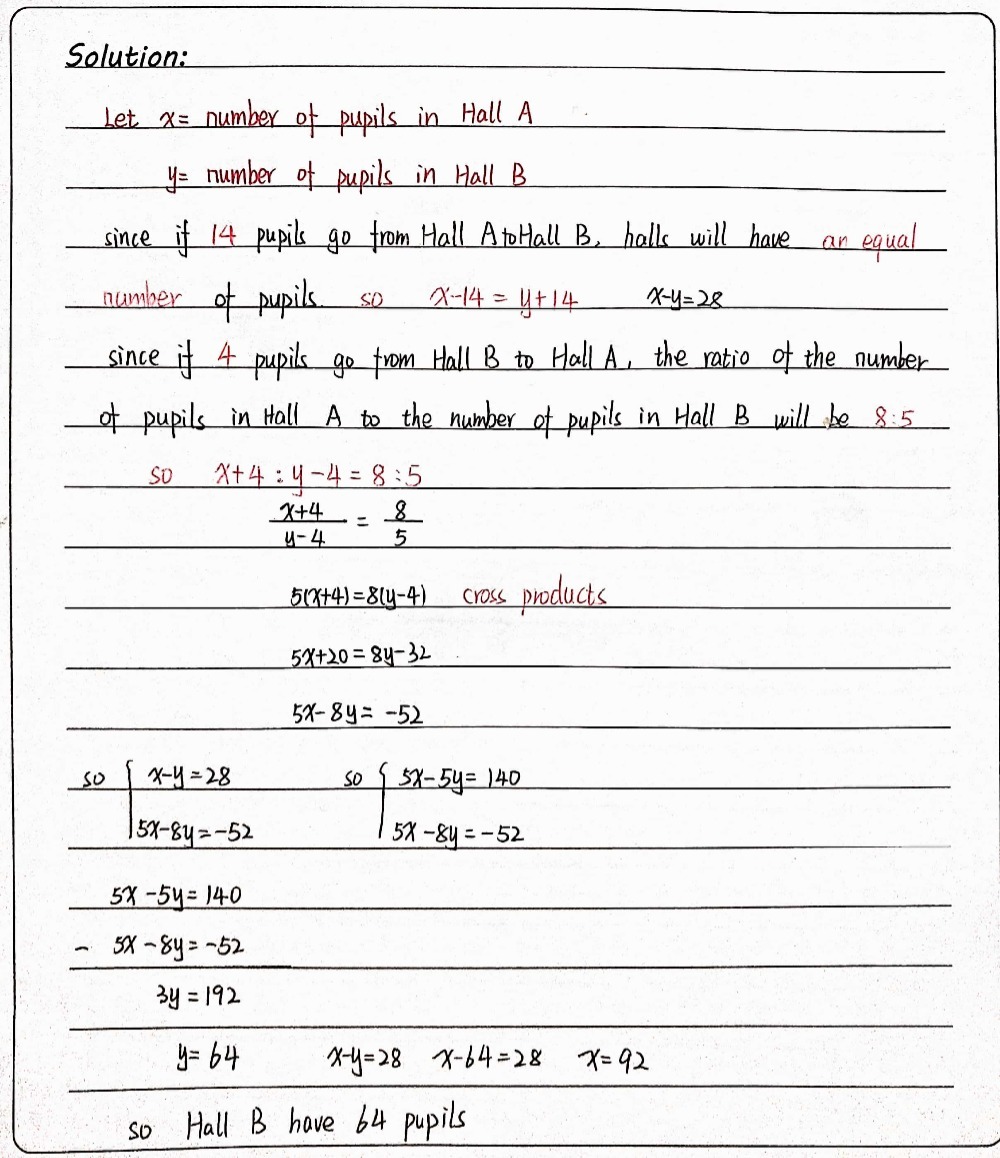 Solution:
Let x= number of pupils in Hall A
y= number of pupils in Hall B
since if 14 pupils go from Hall A to Hall B, halls will have an equal
number of pupils. so x-14 = y+14 x-y=28
since if 4 pupils go from Hall B to Hall A, the ratio of the number
of pupils in Hall A to the number of pupils in Hall B will be 8:5
so x+4 : y-4 = 8:5
x+4/y-4 = 8/5
5(x+4)=8(y-4) cross products
5x+20=8y-32
5x-8y= -52
so { x-y=28 so { 5x-5y= 140
5x-8y=-52 5x-8y=-52
5x-5y= 140
- 5x-8y= -52
3y =192
y= 64 x-y=28 x-64=28 x=92
so Hall B have 64 pupils